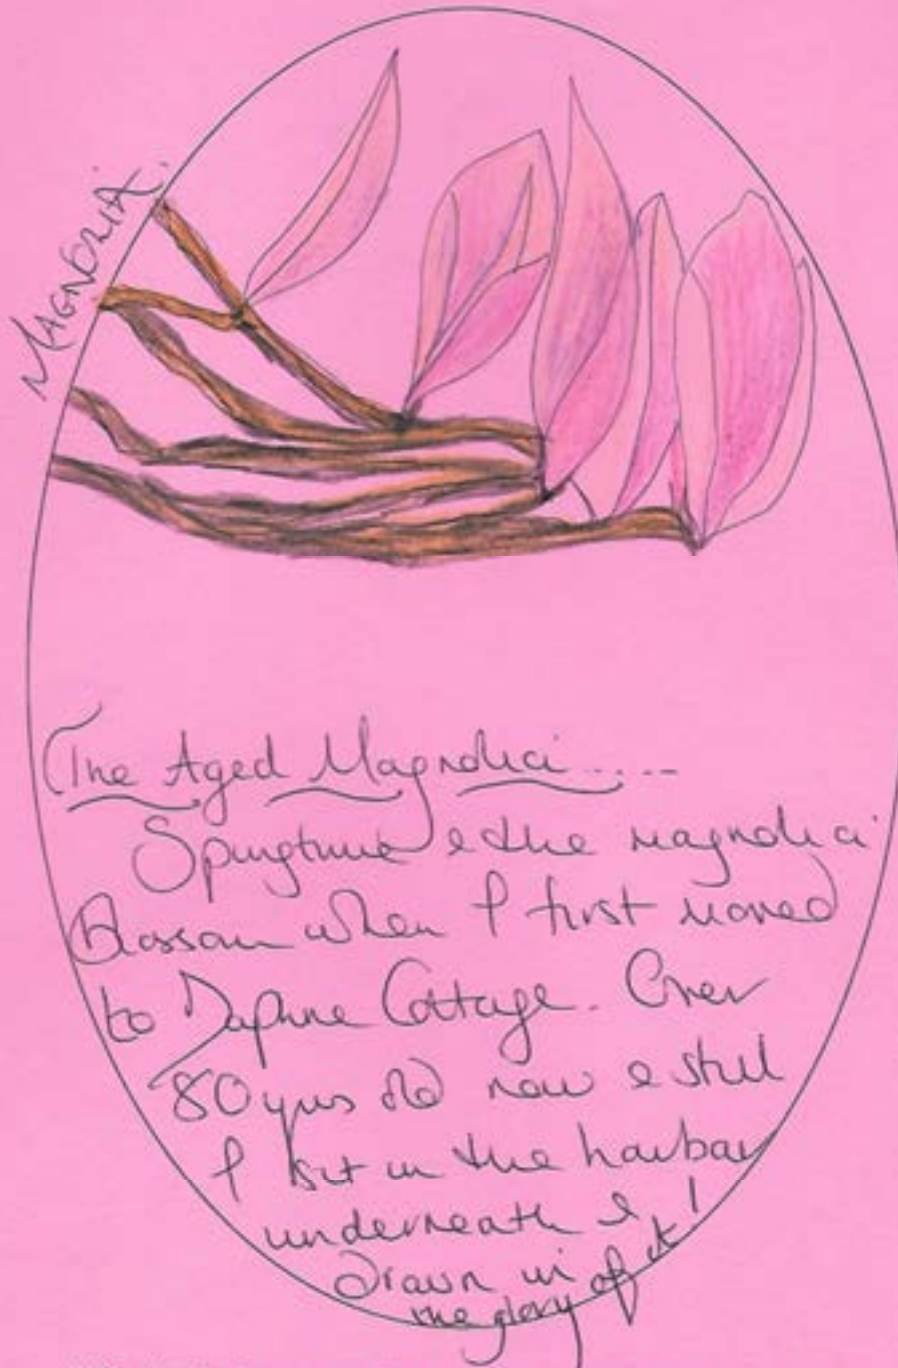 MAGNOLIA.
The Aged Magnolia.....
Springtime & the magnolia
Blossom when I first moved
to Daphne Cottage. Over
80 yrs old now & still
I sit in the harbar
underneath &
drawn in
the glory of it!